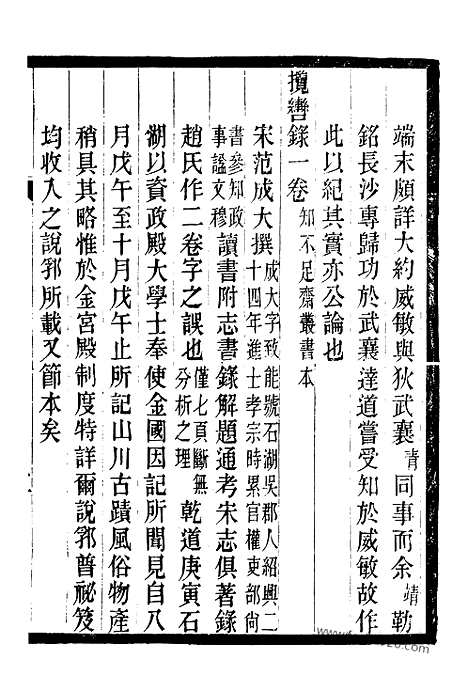 端末頗詳大約威敏與狄武襄青同事而余靖勒
銘長沙專歸功於武襄達道嘗受知於威敏故作
此以紀其實亦公論也
攬轡錄一卷知不足齋叢書本
宋范成大撰成大字致能號石湖吳郡人紹興二十四年進士孝宗時累官權吏部尚
書參知政事諡文穆讀書附志書錄解題通考宋志俱著錄
趙氏作二卷字之誤也僅七頁斷無分析之理乾道庚寅石
湖以資政殿大學士奉使金國因記所聞見自八
月戊午至十月戊午止所記山川古蹟風俗物產
稍具其略惟於金宮殿制度特詳爾說郛普祕笈
均收入之說郛所載又節本矣